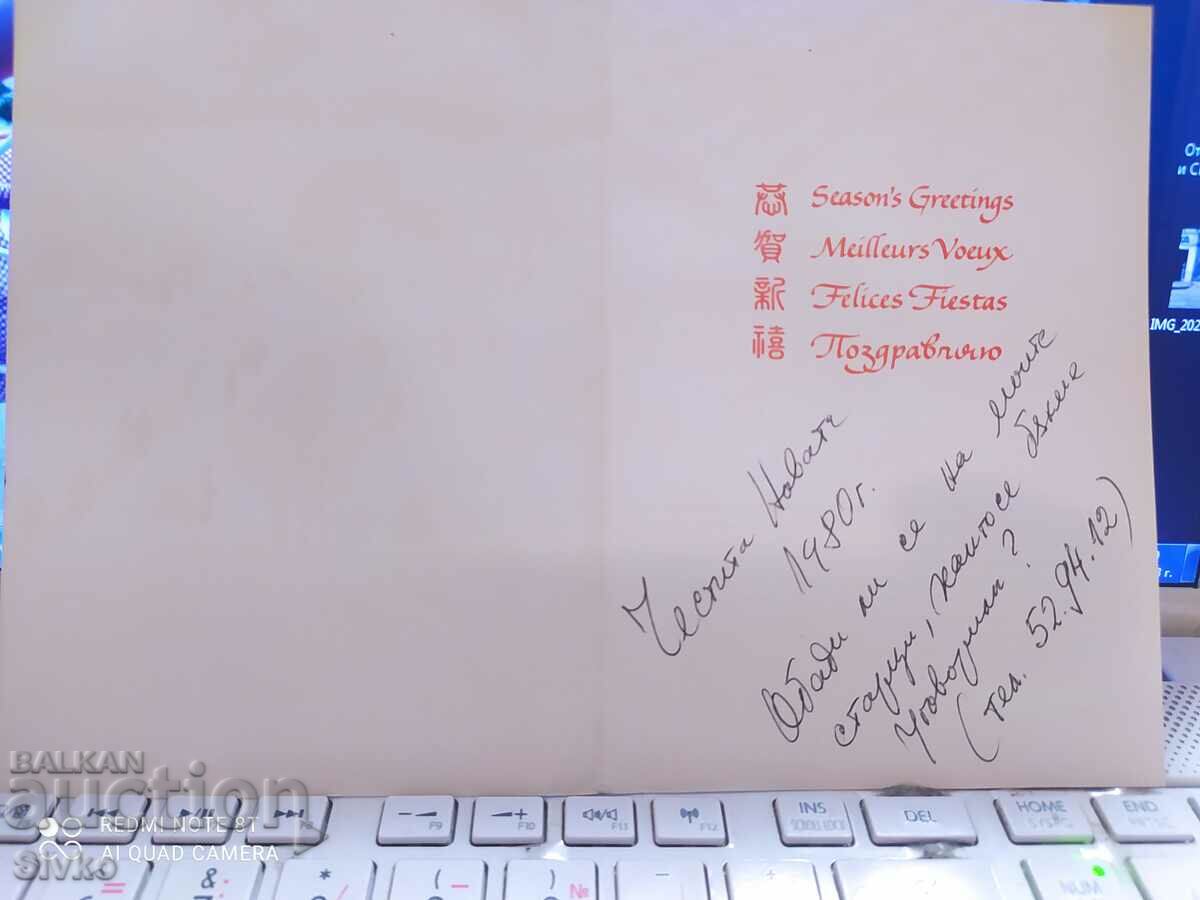 恭賀新禧
Season's Greetings
Meilleurs Voeux
Felices Fiestas
Поздравляю
Честита Новата
1980г.
Обади ли се на моите
старци, както се бяхме
уговорили?
(тел. 52.94.12)
От
и С
IMG_202
BALKAN
auction
sivko
REDMI NOTE 8T
AI QUAD CAMERA
F8
F9
F10
F11
F12
INS
SCROLL LOCK
DEL
HOME
SYSRQ
END
NUM
&
7
*
(
)
№
=